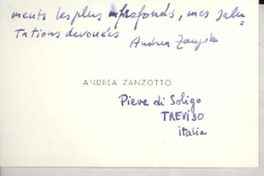 ments les plus profonds, mes salu=
tations devouées
Andrea Zanzotto
ANDREA ZANZOTTO
Pieve di Soligo
TREVISO
italia